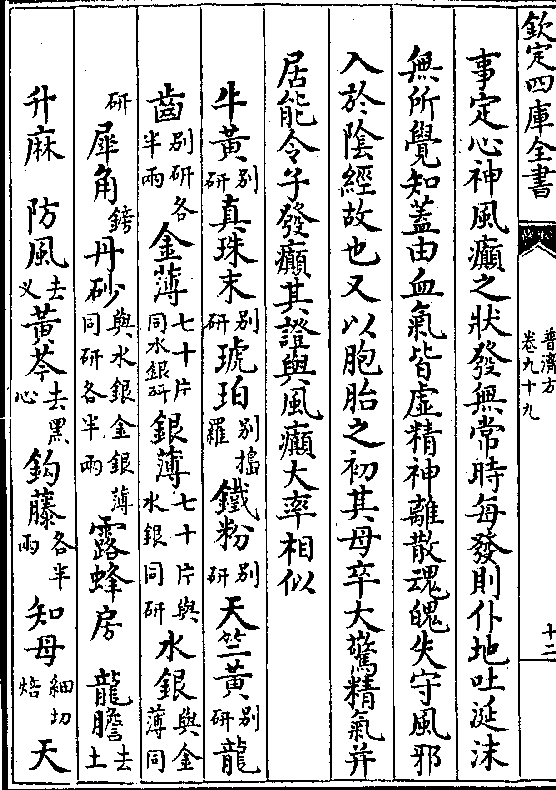 欽定四庫全書
普濟方
卷九十九
十二
事定心神風癲之狀發無常時每發則仆地吐涎沫
無所覺知蓋由血氣皆虛精神離散魂魄失守風邪
入於陰經故也又以胞胎之初其母卒大驚精氣并
居能令子發癲其證與風癲大率相似
牛黃別研真珠末別研琥珀別搗羅鐵粉別研天竺黃別研龍
齒別研各半兩金薄七十片同水銀研銀薄七十片與水銀同研水銀與金薄同
研犀角鎊丹砂與水銀金銀薄同研各半兩露蜂房龍膽去土
升麻防風去义黃芩去黑心鈎藤各半兩知母細切焙天